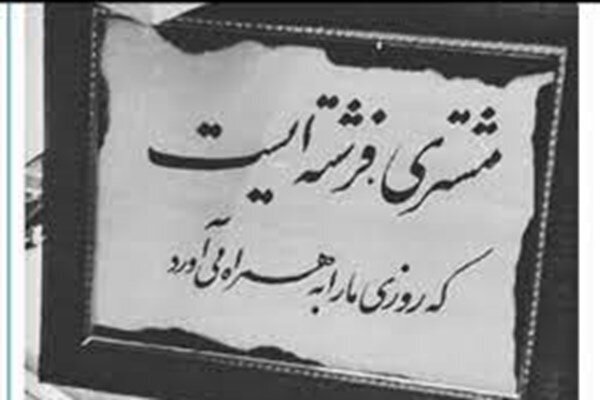 مشتری فرشته ایست
که روزی ما را به همراه می آورد